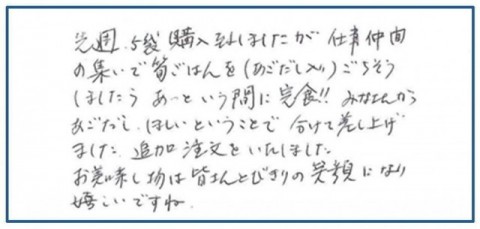 先週、5袋購入致しましたが 仕事仲間
の集いで筍ごはんを(あごだし入り)ごちそう
しましたら あっという間に完食!! みなさんから
あごだし、ほしいということで 分けて差し上げ
ました。追加注文をいたしました
お美味し物は皆さんとびきりの笑顔になり
嬉しいですね。